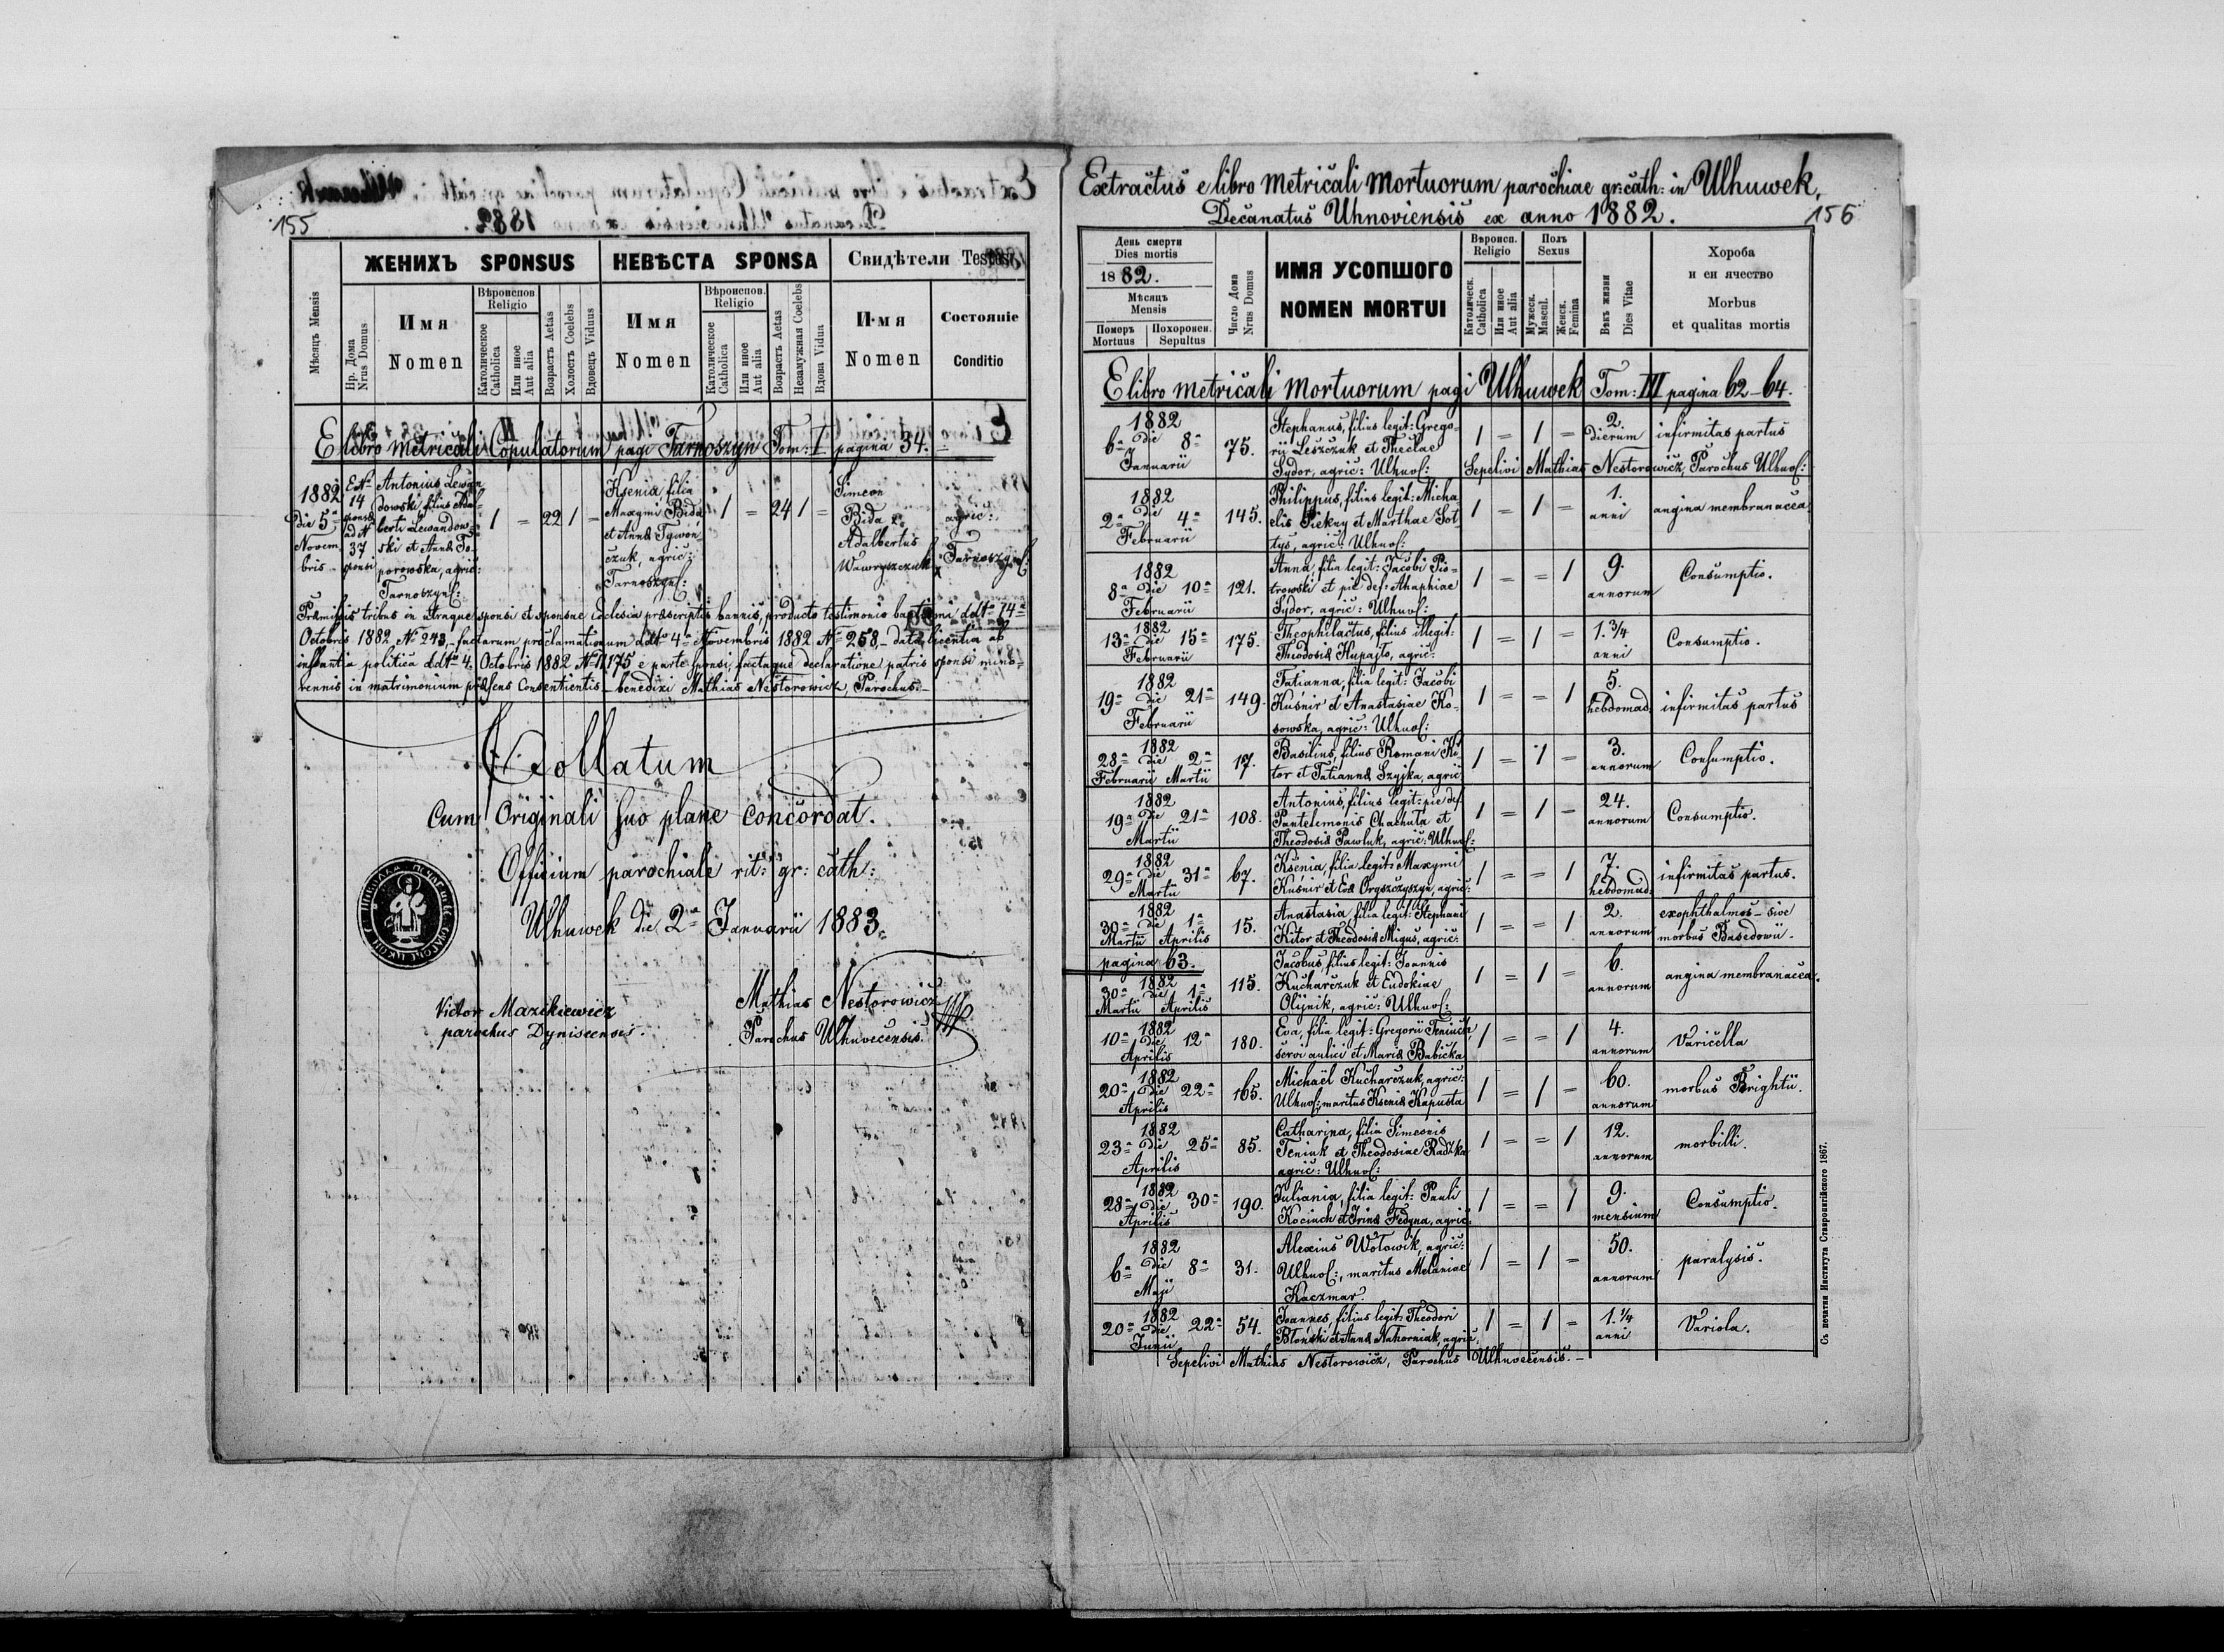 155
ЖЕНИХЪ SPONSUS
НЕВѢСТА SPONSA
Свидѣтели Testes
Мѣсяцъ Mensis
Нр. Дома
Nrus Domus
Имя
Nomen
Вѣроиспов.
Religio
Католическое
Catholica
Или иное
Aut alia
Возрастъ Aetas
Холостъ Coelebs
Вдовецъ Viduus
Имя
Nomen
Вѣроиспов.
Religio
Католическое
Catholica
Или иное
Aut alia
Возрастъ Aetas
Незамужная Coelebs
Вдова Vidua
Имя
Nomen
Состояніе
Conditio
E libro metricali Copulatorum pagi Tarnoszyn Tom: I pagina 34.
1882
die 5ª
Novem
bris
Ex Nº
14
sponsæ
ad N
37
sponsi
Antonius Lewan
dowski, filius Adal
berti Lewandow
ski et Annæ To
porowska, agric:
Tarnoszyn:
1 = 22 1 =
Ksenia, filia
Maxymi Bida
et Annæ Tywoń
czuk, agric:
Tarnoszyn:
1 = 24 1 =
Simeon
Bida et
Adalbertus
Wawryszczuk
agric:
Tarnoszyn:
Præmissis tribus in utraque sponsi et sponsae ecclesia præscriptis bannis, producto testimonio baptismi ddtº 14ª
Octobris 1882 Nº 243,- factarum proclamationum ddtº 4ª Novembris 1882 Nº 258,- data licentia ab
instantia politica ddtº 4. Octobris 1882 Nº 11175 e parte sponsi, factaque declaratione patris sponsi mino-
rennis in matrimonium præsens consentientis - benedixi Mathias Nestorowicz, Parochus.-
Collatum
Cum Originali suo plane concordat.
Officium parochiale rit: gr: cath:
Ulhuwek die 2ª Januarii 1883.
Victor Mazikiewicz
parochus Dyniscensis.
Mathias Nestorowicz
Parochus Ulhuvecensis.
Extractus e libro metricali Mortuorum parochiae gr: cath: in Ulhuwek,
Decanatus Uhnoviensis ex anno 1882.
156
День смерти
Dies mortis
1882.
Мѣсяцъ
Mensis
Померъ
Mortuus
Похоронен.
Sepultus
Число Дома
Nrus Domus
ИМЯ УСОПШОГО
NOMEN MORTUI
Вѣроисп.
Religio
Католическ.
Catholica
Или иное
Aut alia
Полъ
Sexus
Мужеск.
Mascul.
Женск.
Femina
Вѣкъ жизни
Dies Vitae
Хороба
и еи ячество
Morbus
et qualitas mortis
E libro metricali Mortuorum pagi Ulhuwek Tom: III pagina 62-64.
1882
6ª die 8ª
Januarii
75.
Stephanus, filius legit: Grego-
rii Leszczuk et Theclae
Sydor, agric: Ulhuv:
1 = 1 =
2.
dierum
infirmitas partus
Sepelivi Mathias Nestorowicz, Parochus Ulhuv:
1882
2ª die 4ª
Februarii
145.
Philippus, filius legit: Micha
elis Piekny et Marthae Sot
tys, agric: Ulhuv:
1 = 1 =
1.
anni
angina membranacea
1882
8ª die 10ª
Februarii
121.
Anna, filia legit: Jacobi Pio-
trowski et pie def: Ahaphiae
Sydor, agric: Ulhuv:
1 = = 1
9.
annorum
Consumptio.
1882
13ª die 15ª
Februarii
175.
Theophilactus, filius illegit:
Theodosiæ Hupajto, agric:
1 = 1 =
1. 3/4
anni
Consumptio.
1882
19ª die 21ª
Februarii
149.
Tatianna, filia legit: Jacobi
Kuśnir et Anastasiae Ko-
sowska, agric: Ulhuv:
1 = = 1
5.
hebdomad:
infirmitas partus
1882
28ª die 2ª
Februarii Martii
17.
Basilius, filius Romani Ki
tor et Tatiannæ Szyjka, agric:
1 = 1 =
3.
annorum
Consumptio.
1882
19ª die 21ª
Martii
108.
Antonius, filius legit: pie def
Pantelemonis Chachuta et
Theodosiæ Pawluk, agric: Ulhuv:
1 = 1 =
24.
annorum
Consumptio.
1882
29ª die 31ª
Martii
67.
Ksenia, filia legit: Maxymi
Kuśnir et Evæ Oryszczyszyn, agric:
1 = = 1
7.
hebdomad:
infirmitas partus.
1882
30ª die 1ª
Martii Aprilis
15.
Anastasia, filia legit: Stephani
Kitor et Theodosiæ Migus, agric:
1 = = 1
2.
annorum
exophthalmos - sive
morbus Basedowii.
pagina 63.
1882
30ª die 1ª
Martii Aprilis
115.
Jacobus, filius legit: Joannis
Kucharczuk et Eudokiae
Olijnik, agric: Ulhuv:
1 = 1 =
6.
annorum
angina membranacea.
1882
10ª die 12ª
Aprilis
180.
Eva, filia legit: Gregorii Teniuch,
servi aulici et Mariæ Babicka
1 = = 1
4.
annorum
Varicella
1882
20ª die 22ª
Aprilis
165.
Michaël Kucharczuk, agric:
Ulhuv: maritus Kseniæ Kapusta
1 = 1 =
60.
annorum
morbus Brightii.
1882
23ª die 25ª
Aprilis
85.
Catharina, filia Simeonis
Teniuk et Theodosiae Radzka
agric: Ulhuv:
1 = = 1
12.
annorum
morbilli.
1882
28ª die 30ª
Aprilis
190.
Juliania, filia legit: Pauli
Kociuch et Irinæ Fedyna, agric:
1 = = 1
9.
mensium
Consumptio.
1882
6ª die 8ª
Maji
31.
Alexius Wołowik, agric:
Ulhuv:, maritus Melaniae
Kaczmar.
1 = 1 =
50.
annorum
paralysis.
1882
20ª die 22ª
Junii
54.
Joannes, filius legit: Theodori
Błoński et Annæ Nahorniak, agric:
1 = 1 =
1. 1/4
anni
Variola.
Sepelivi Mathias Nestorowicz, Parochus Ulhuvecensis.-
Съ печатни Института Ставропигійского 1867.